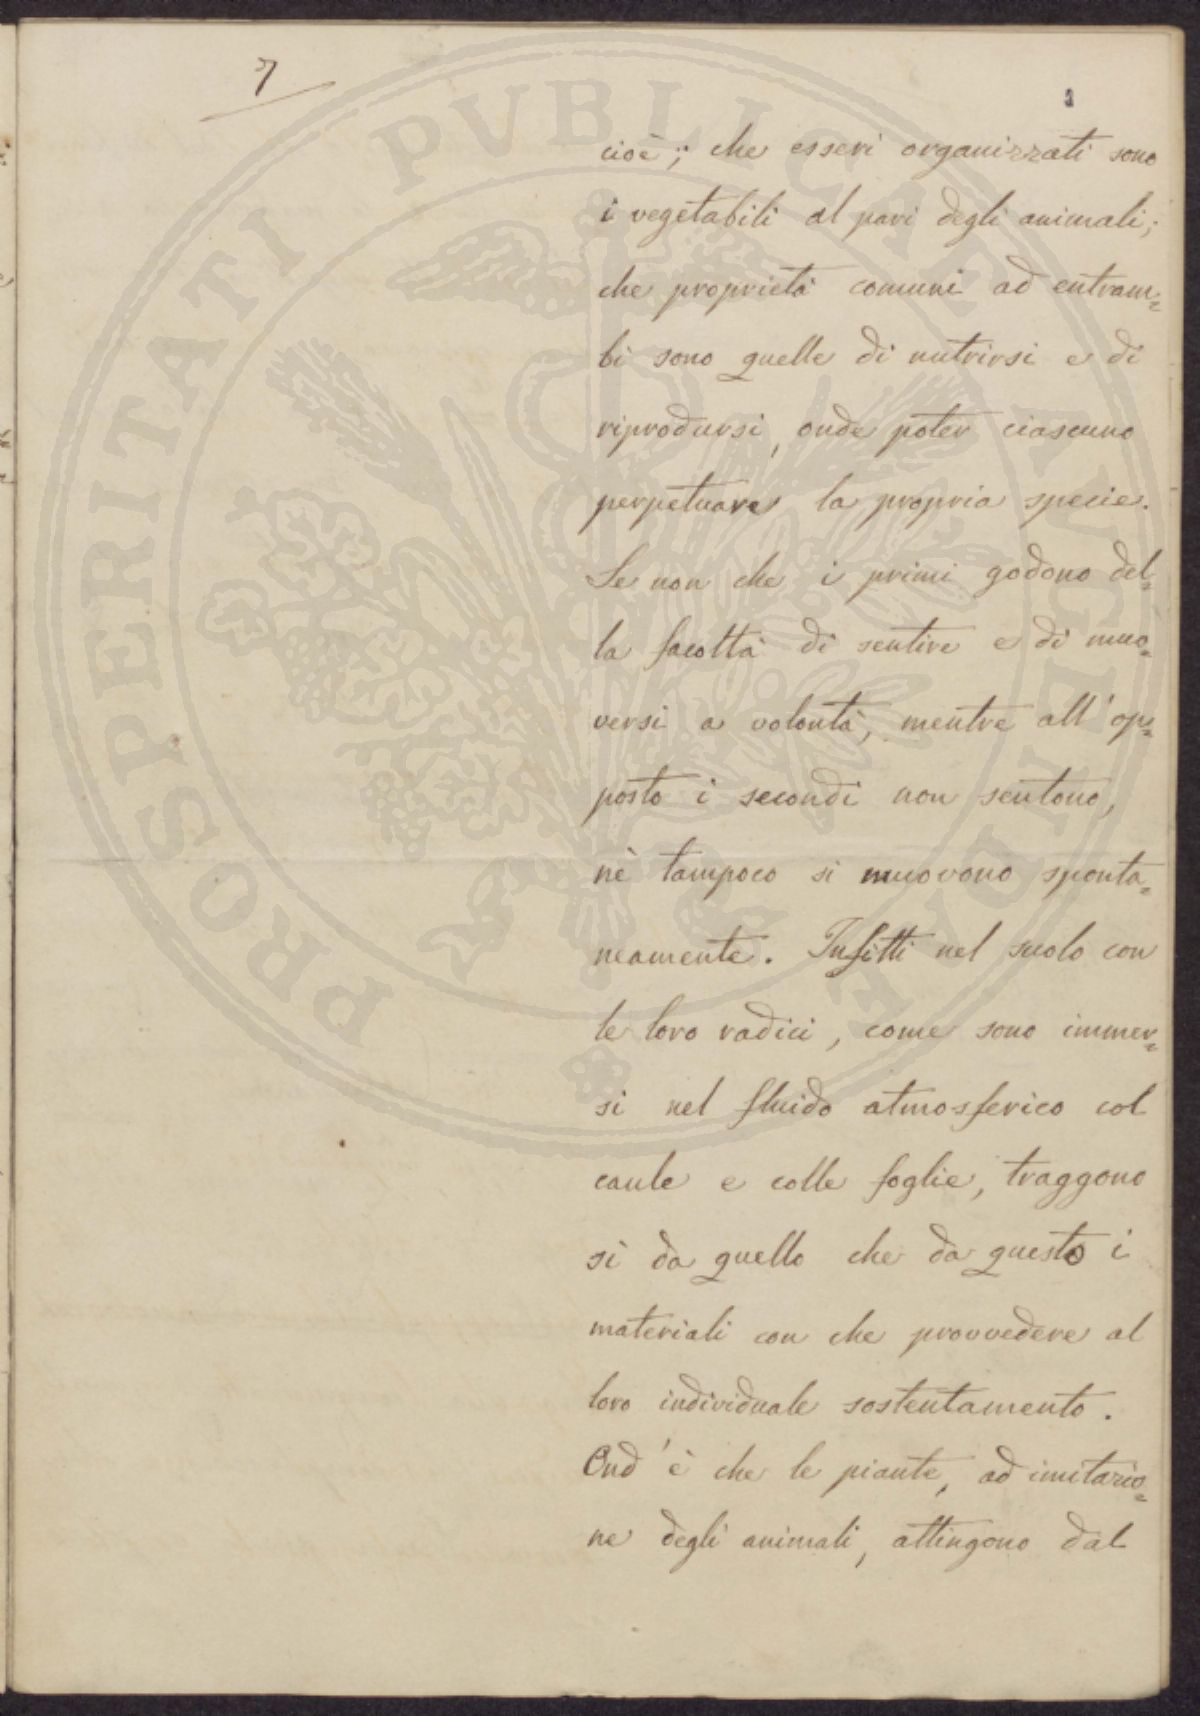 7
cioè; che esseri organizzati sono
i vegetabili al pari degli animali;
che proprietà comuni ad entram=
bi sono quelle di nutrirsi e di
riprodursi, onde poter ciascuno
perpetuare la propria specie.
Se non che i primi godono del=
la facoltà di sentire e di muo=
versi a volontà, mentre all'op=
posto i secondi non sentono,
nè tampoco si muovono sponta=
neamente. Infitti nel suolo con
le loro radici, come sono immer=
si nel fluido atmosferico col
caule e colle foglie, traggono
sì da quello che da questo i
materiali con che provvedere al
loro individuale sostentamento.
Ond'è che le piante, ad imitazio=
ne degli animali, attingono dal
PROSPERITATI PVBLICAE AVGENDAE